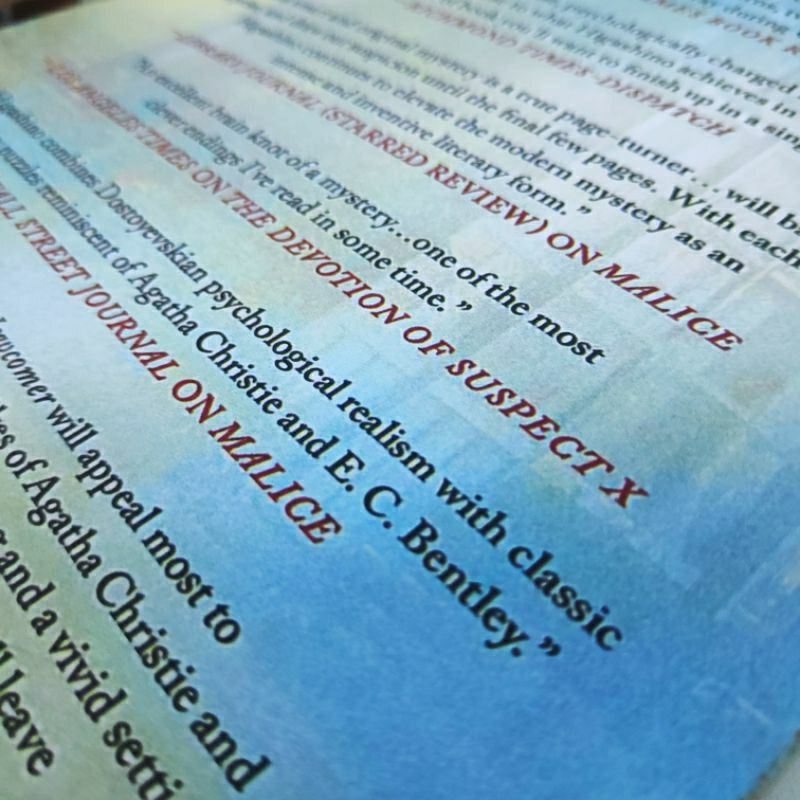 psychologically charged
what Higashino achieves in
to finish up in a sing
RICHMOND TIMES-DISPATCH
mystery is a true page-turner... will b
until the final few pages. With each
continues to elevate the modern mystery as an
and inventive literary form."
LIBRARY JOURNAL (STARRED REVIEW) ON MALICE
excellent brain knot of a mystery...one of the most
clever endings I've read in some time."
LOS ANGELES TIMES ON THE DEVOTION OF SUSPECT X
combines Dostoyevskian psychological realism with classic
puzzles reminiscent of Agatha Christie and E. C. Bentley."
WALL STREET JOURNAL ON MALICE
Newcomer will appeal most to
of Agatha Christie and
and a vivid setti
leave